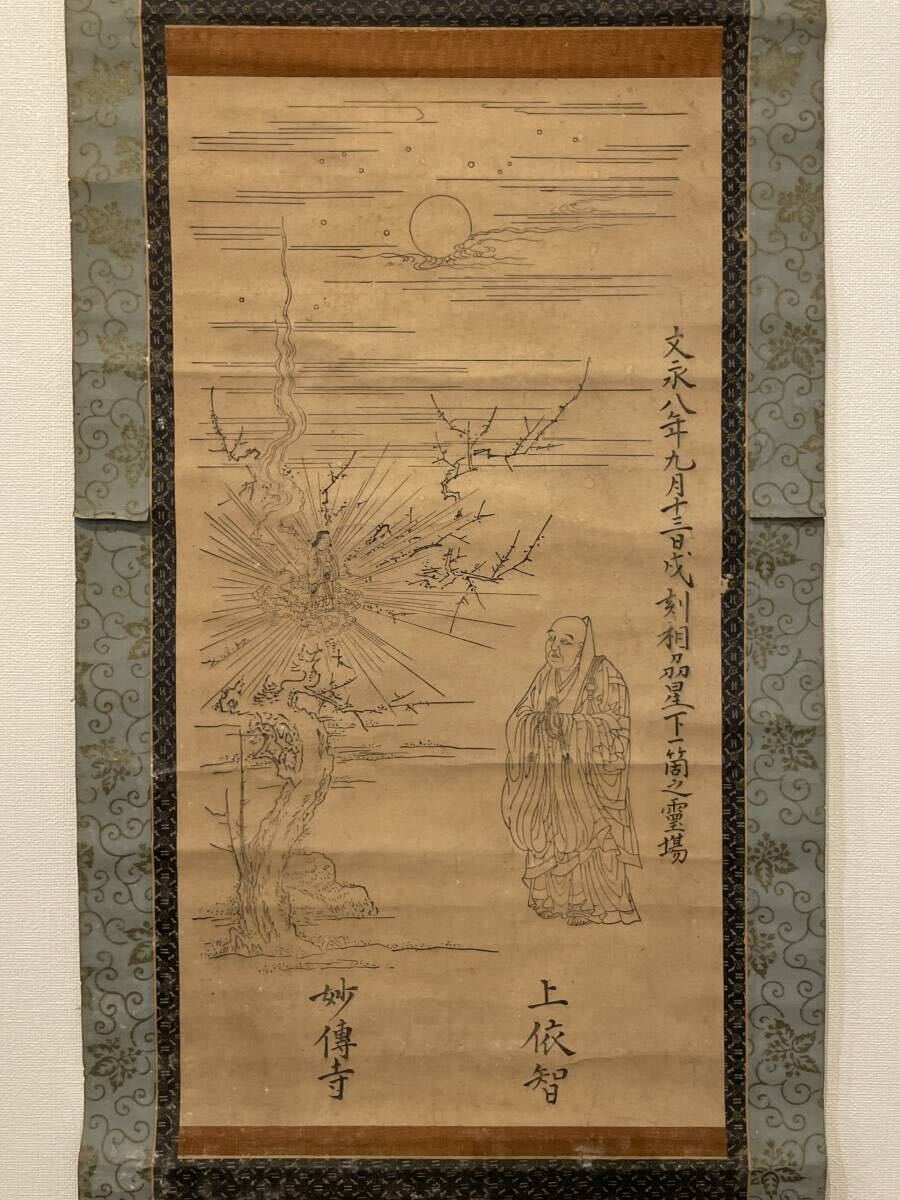 文永八年九月十三日戌刻相刕星下一箇之靈場
上依智
妙傳寺